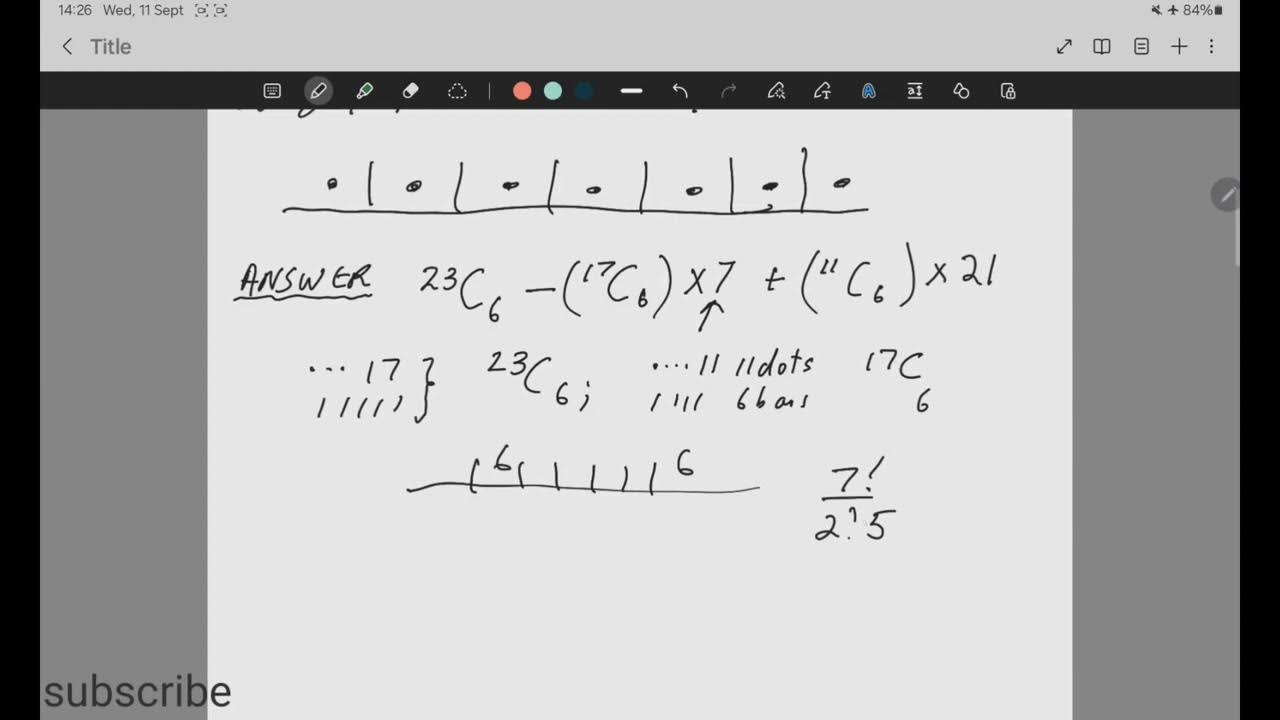 14:26 Wed, 11 Sept 84%
Title
ANSWER ²³C₆ – (¹⁷C₆) × 7 + (¹¹C₆) × 21
... 17 } ²³C₆; ... 11 11dots ¹⁷C₆
6 bars
6 6 7!
2! 5
subscribe